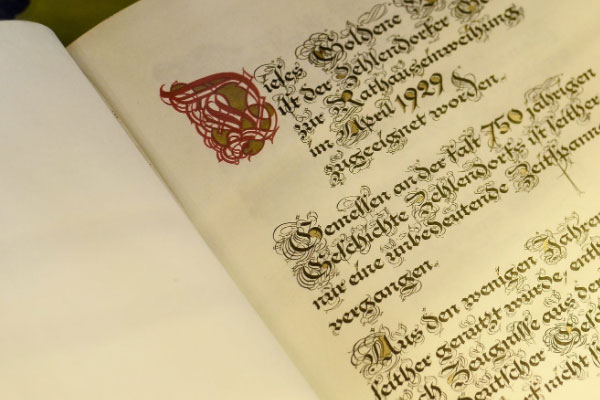 Dieses Goldene
ist der Zehlendorfer
zur Rathauseinweihung
im April 1929
zugeeignet worden.
Gemessen an der fast 750 jährigen
Geschichte Zehlendorfs ist seither
nur eine unbedeutende Zeitspanne
vergangen.
Aus den wenigen Jahren
seither genutzt wurde,
Zeugnisse aus der
deutscher
nicht